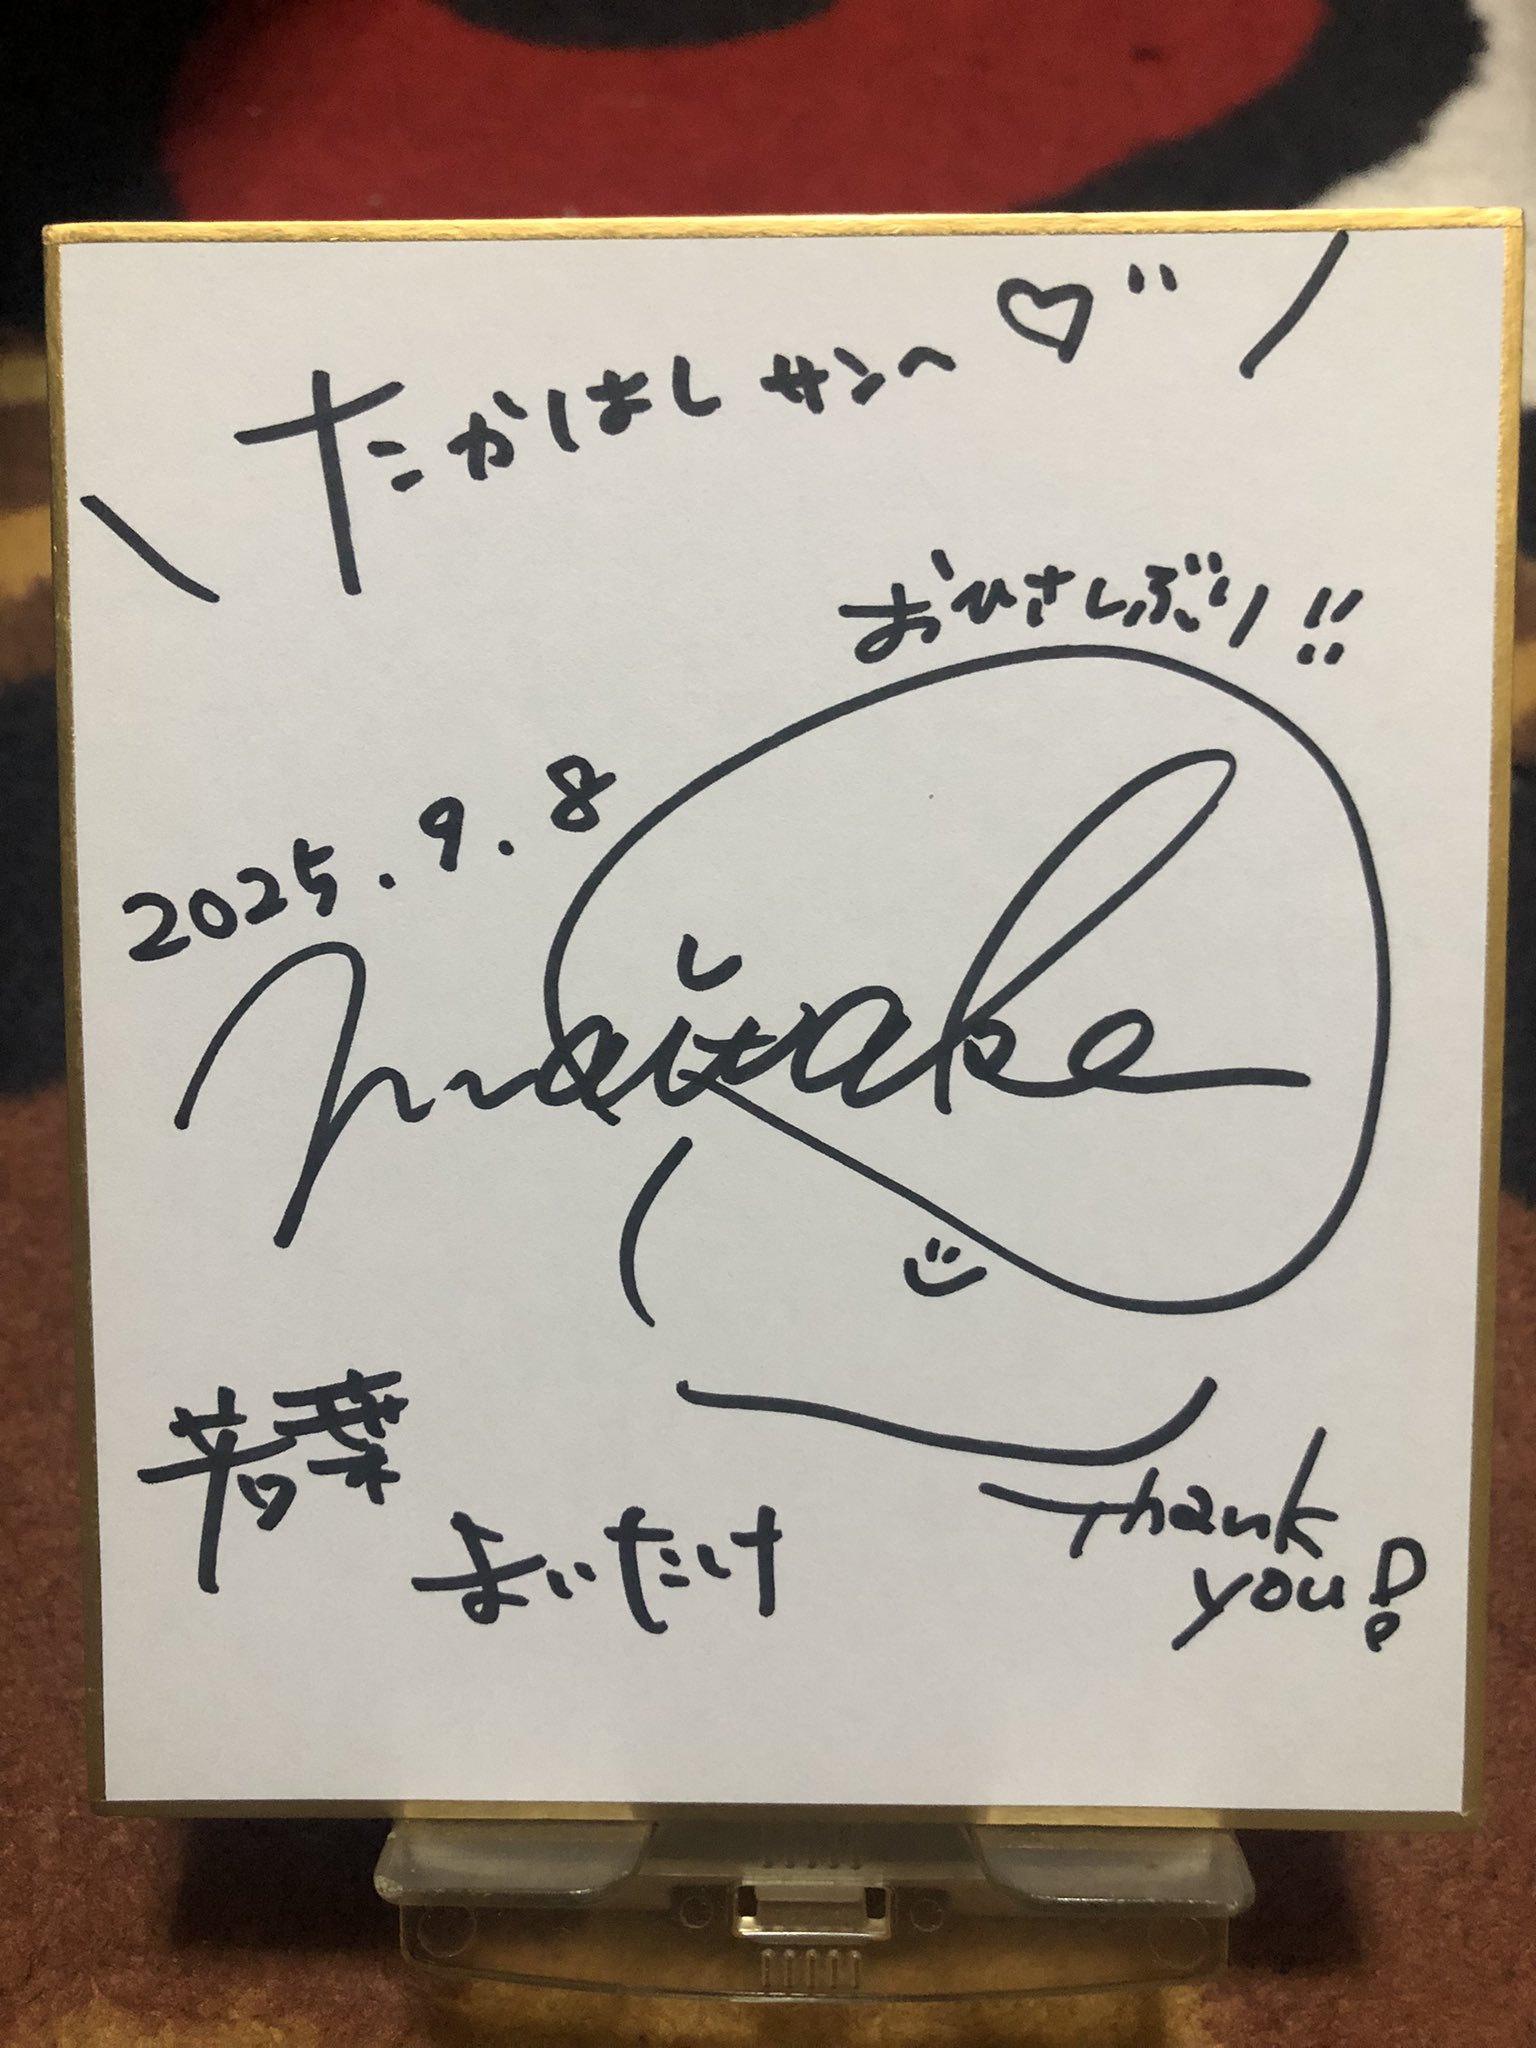 たかはしサンへ♡
おひさしぶり!!
2025.9.8
maitake
若葉
まいたけ
Thank
you!